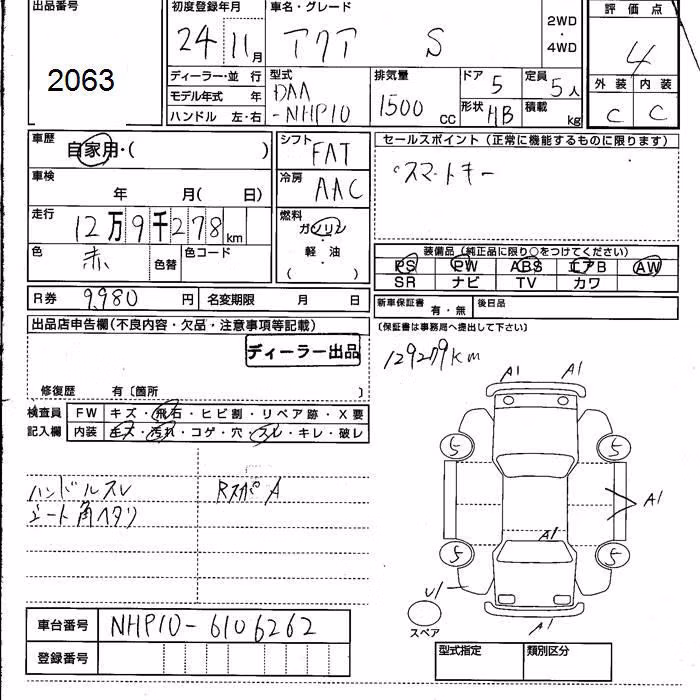 出品番号
2063
初度登録年月
24 11月
車名・グレード
アクア S
2WD
・
4WD
評価点
4
外装 内装
C C
ディーラー・並行
モデル年式 年
ハンドル 左・右
型式
DAA
-NHP10
排気量
1500 cc
ドア 5
形状 HB
定員 5人
積載 kg
車歴
自家用・( )
車検
年 月( 日)
走行
12万9千278km
色
赤
色替
色コード
シフト
FAT
冷房
AAC
燃料
ガソリン
・
軽・油
・
( )
セールスポイント(正常に機能するものに限ります)
スマートキー
装備品(純正品に限り○をつけてください)
PS PW ABS エアB AW
SR ナビ TV カワ
R券 9,980 円
名変期限 月 日
新車保証書 有・無
後日品
(保証書は事務局へ提出して下さい)
出品店申告欄(不良内容・欠品・注意事項等記載)
ディーラー出品
修復歴 有〔箇所 〕
129279km
検査員
記入欄
FW キズ・飛石・ヒビ割・リペア跡・X要
内装 キズ・汚れ・コゲ・穴・スレ・キレ・破レ
ハンドルスレ
シート角ヘタリ
RスポA
A1 A1
5 5
A1
A1
5 5
U1
A1
スペア
車台番号 NHP10-6106262
登録番号
型式指定 類別区分